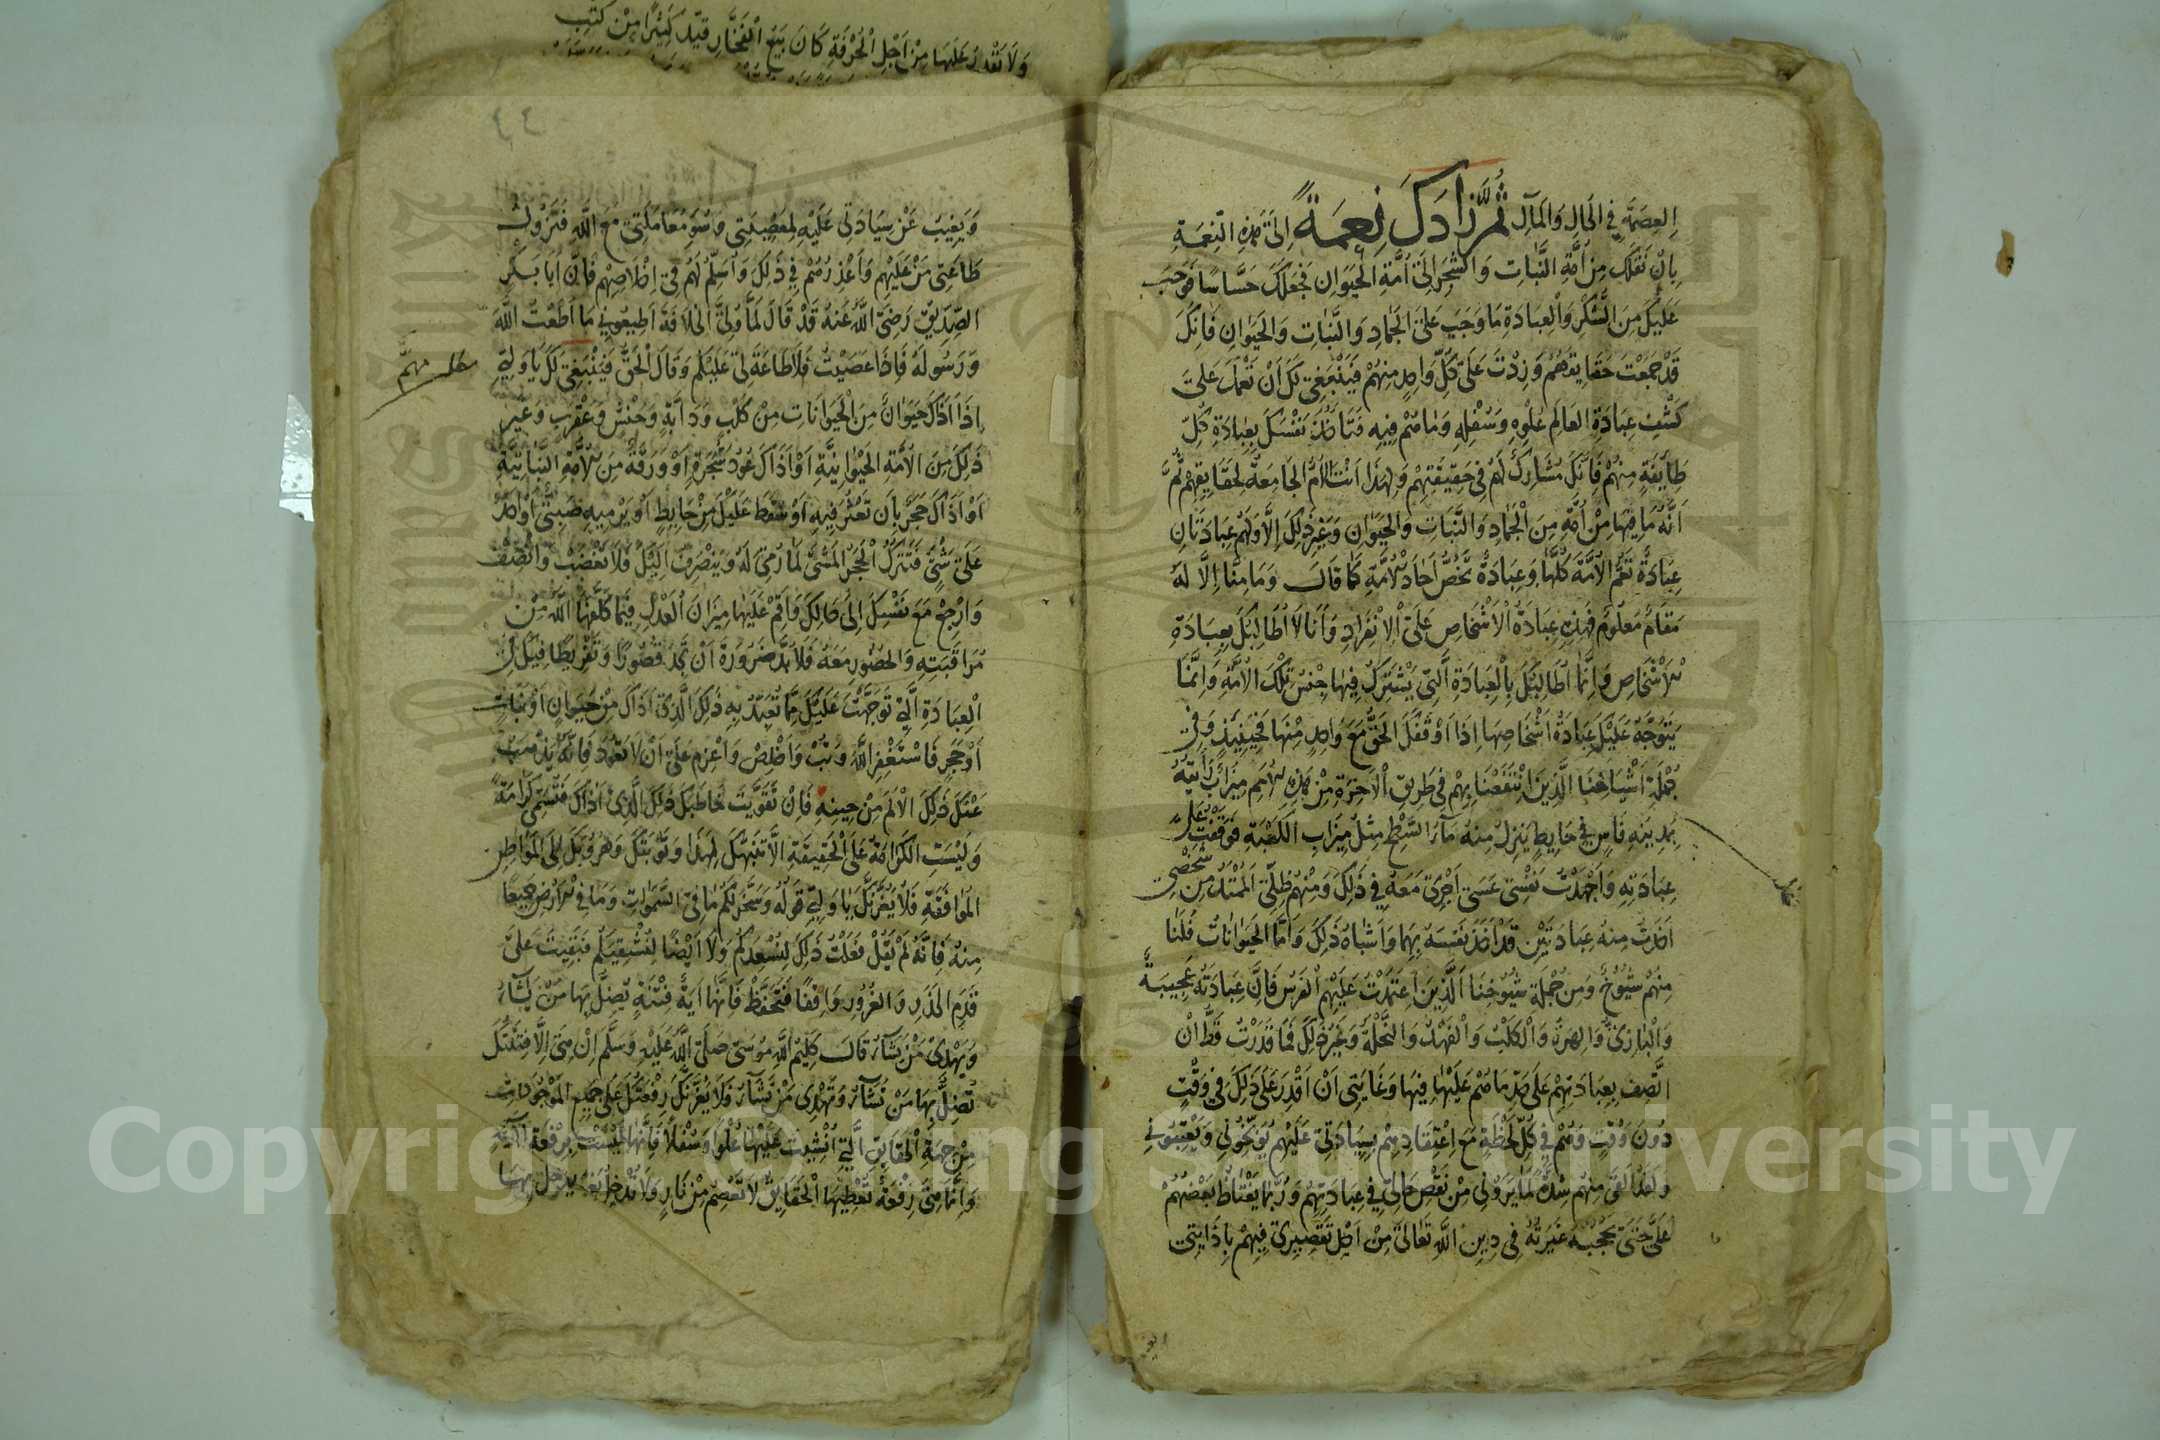 العِصمَةِ فِي الحَالِ وَالمَآلِ ثُمَّ زَادَكَ نِعمَةً اِلَى هَذِهِ النِّعمَةِ
بِاَنْ نَقَلَكَ مِن اُمَّةِ النَّبَاتِ وَالشَّجَرِ اِلَى اُمَّةِ الحَيَوَانِ فَجَعَلَكَ حَسَّاسًا فَوَجَبَ
عَلَيْكَ مِنَ الشُّكْرِ وَالْعِبَادَةِ مَا وَجَبَ عَلَى الجَمَادِ وَالنَّبَاتِ وَالحَيَوَانِ فَاِنَّكَ
قَدْ جَمَعْتَ حَقَايِقَهُمْ وَزِدْتَ عَلَى كُلِّ وَاحِدٍ مِنهُمْ فَيَنْبَغِي لَكَ اَنْ تَعْمَلَ عَلَى
كَشْفِ عِبَادَةِ العَالَمِ عُلْوِهِ وَسُفْلِهِ وَمَا هُمْ فِيهِ فَتَاخُذَ نَفْسَكَ بِعِبَادَةِ كُلِّ
طَايِفَةٍ مِنْهُمْ فَاِنَّكَ مُشَارِكٌ لَهُمْ فِي حَقِيقَتِهِمْ وَلِهَذَا اَنْتَ الاُمُّ الجَامِعَةُ لِحَقَايِقِهِمْ ثُمَّ
اَنَّهُ مَا فِيهَا مِنْ اُمَّةٍ مِنَ الْجَمَادِ وَالنَّبَاتِ وَالحَيَوَانِ وَغَيْرِ ذَلِكَ اِلَّا وَلَهُمْ عِبَادَتَانِ
عِبَادَةٌ تَعُمُّ الاُمَّةَ كُلَّهَا وَعِبَادَةٌ تَخُصُّ اَحَادَ الاُمَّةِ كَمَا قَالَ وَمَا مِنَّا اِلَّا لَهُ
مَقَامٌ مَعْلُومٌ فَهَذِهِ عِبَادَةُ الْاَشْخَاصِ عَلَى الْاِنْفِرَادِ وَاَنَا لَا اُطَالِبُكَ بِعِبَادَةِ
الاَشْخَاصِ وَاِنَّمَا اُطَالِبُكَ بِالْعِبَادَةِ الَّتِي يَشْتَرِكُ فِيهَا جِنْسُ تِلْكَ الاُمَّةِ وَاِنَّمَا
يَتَوَجَّهُ عَلَيْكَ عِبَادَةُ اَشْخَاصِهَا اِذَا اَوْقَفَكَ الحَقُّ مَعَ وَاحِدٍ مِنْهَا فَحِينَئِذٍ وَمِنْ
جُمْلَةِ اَشْيَاخِنَا الَّذِينَ انْتَفَعْنَا بِهِمْ فِي طَرِيقِ الْاخِرَةِ مِنْ هَذِهِ الاُمَمِ مِيزَابٌ رَايْتُهُ
بِمَدِينَةِ فَاسٍ فِي حَايِطٍ يَنْزِلُ مِنهُ مَآءُ السَّطْحِ مِثْلُ مِيزَابِ الكَعْبَةِ فَوَقَفْتُ عَلَى
عِبَادَتِهِ وَاجْهَدْتُ نَفْسِي عَسَى اَجْرِي مَعَهُ فِي ذَلِكَ وَمِنْهُمْ ظِلِّي المُمْتَدُّ مِن شَخْصِي
اَخَذْتُ مِنهُ عِبَادَتَيْنِ قَدْ اَخَذَ نَفْسَهُ بِهِمَا وَاَشْبَاهُ ذَلِكَ وَاَمَّا الحَيَوَانَاتُ فَلَنَا
مِنْهُمْ شُيُوخٌ وَمِن جُمْلَةِ شُيُوخِنَا الَّذِينَ اِعْتَمَدْتُ عَلَيْهِمُ الفَرَسُ فَاِنَّ عِبَادَتَهُ عَجِيبَةٌ
وَالْبَازِيُّ وَالهِرَّةُ وَالْكَلْبُ وَالْفَهْدُ وَالنَّحْلَةُ وَغَيْرُ ذَلِكَ فَمَا قَدَرْتُ قَطُّ اَنْ
اَتَّصِفَ بِعِبَادَتِهِمْ عَلَى حَدِّ مَا هُمْ عَلَيْهَا فِيهَا وَغَايَتِي اَنْ اَقْدِرَ عَلَى ذَلِكَ فِي وَقْتٍ
دُونَ وَقْتٍ وَهُمْ فِي كُلِّ لَحْظَةٍ مَعَ اِعْتِقَادِهِمْ بِسِيَادَتِي عَلَيْهِمْ يُوَبِّخُونِي وَيُعَتِّبُونِي
وَلَقَدْ اَلْقَى مِنهُمْ شِدَّةً لِمَا يَرَوْنَ لِي مِنْ نَقْصِ حَالِي فِي عِبَادَتِهِمْ وَرُبَمَا يَغْتَاظُ بَعْضُهُمْ
عَلَيَّ حَتَّى تَحْجُبَهُ غَيْرَتُهُ فِي دِينِ اللهِ تَعَالَى مِنْ اَجْلِ تَقْصِيرِي فِيهِمْ بِاِذَايَتِي
وَلَا نَقْدِرُ عَلَيهَا مِنْ اَجْلِ الْحُرْفَةِ كَانَ يَبِيعُ الْفَخَّارَ قَيَّدَ كَثِيرًا مِنْ كُتُبِ
وَيَغِيبَ عَنْ سِيَادَتِي عَلَيْهِ لِمَعْصِيَتِي وَسُوءِ مُعَامَلَتِي مَعَ اللهِ فَتَزُولُ
طَاعَتِي مِنْ عَلَيْهِمْ وَاَعْذِرُهُمْ فِي ذَلِكَ وَاُسَلِّمُ لَهُمْ فِي اِخْلَاصِهِمْ فَاِنَّ اَبَا بَكْرٍ
الصِّدِّيقَ رَضِيَ اللهُ عَنهُ قَدْ قَالَ لَمَّا وُلِّيَ الخِلَافَةَ اَطِيعُونِي مَا اَطَعْتُ اللهَ
وَرَسُولَهُ فَاِذَا عَصَيْتُ فَلَا طَاعَةَ لِي عَلَيْكُمْ وَقَالَ الْحَقَّ فَيَنْبَغِي لَكَ يَا وَلِيِّ
اِذَا اَذَاكَ حَيَوَانٌ مِنَ الْحَيَوَانَاتِ مِنْ كَلْبٍ وَدَابَّةٍ وَحَنْشٍ وَعَقْرَبٍ وَغَيْرِ
ذَلِكَ مِنَ الاُمَّةِ الحَيْوَانِيَّةِ اَوْ اَذَاكَ عُودُ شَجَرَةٍ اَوْ وَرَقَةٌ مِنَ الاُمَّةِ النَّبَاتِيَّةِ
اَوْ اَذَاكَ حَجَرٌ بِاَن تَعْثُرَ فِيهِ اَوْ سَقَطَ عَلَيْكَ مِنْ حَايِطٍ اَوْ يَرْمِيهِ صَبِيٌّ اَوْ اَحَدٌ
عَلَى شَيْءٍ فَتَتْرُكَ الْحَجَرُ المَشْيَ لِمَا رُمِيَ لَهُ وَيَنْصَرِفَ اِلَيْكَ فَلَا تَغْضَبْ وَانْصِفْ
وَارْجِعْ مَعَ نَفْسِكَ اِلَى حَالِكَ وَاَقِمْ عَلَيْهَا مِيزَانَ الْعَدْلِ فِيمَا كَلَّفَهَا اللهُ مِنْ
مُرَاقَبَتِهِ وَالحُضُورِ مَعَهُ فَلَا بُدَّ ضَرُورَةً اَنْ تَجِدَ قُصُورًا وَتَفْرِيطًا فِي تِلْكَ
الْعِبَادَةِ الَّتِي تَوَجَّهَتْ عَلَيْكَ مِمَّا تَعَبَّدَ بِهِ ذَلِكَ الَّذِي اَذَاكَ مِنْ حَيَوَانٍ اَوْ نَبَاتٍ
اَوْ حَجَرٍ فَاسْتَغْفِرِ اللهَ وَتُبْ وَاَخْلِصْ وَاَعْزِمْ عَلَى اَنْ لَا تَعُودَ فَاِنَّهُ يَذْهَبُ
عَنْكَ ذَلِكَ الْاَلَمُ مِنْ حِينِهِ فَاِنْ تَقَوَّيْتَ خَاطَبَكَ ذَلِكَ الَّذِي اَذَاكَ فَتُسَمَّى كَرَامَةً
وَلَيْسَتِ الكَرَامَةُ عَلَى الْحَقِيقَةِ اِلَّا تَنَبُّهَكَ لِهَذَا وَتَوْبَتَكَ وَهُرُوبَكَ اِلَى المَوَاطِنِ
المُوَافَقَةِ فَلَا يَغُرَّنَّكَ يَا وَلِيِّ قَوْلُهُ وَسَخَّرَ لَكُمْ مَا فِي السَّمَوَاتِ وَمَا فِي الاَرْضِ جَمِيعًا
مِنهُ فَاِنَّهُ لَمْ يَقُلْ فَعَلْتُ ذَلِكَ لِنُسْعِدَكُمْ وَلَا اَيْضًا لِنُشْقِيَكُمْ فَبَقِيتَ عَلَى
قَدَمِ الحَذَرِ وَالغُرُورِ وَاقِفًا فَتَحَفَّظْ فَاِنَّهَا اَيَةُ فِتْنَةٍ تُضِلُّ بِهَا مَنْ يَشَآءُ
وَيَهْدِي مَنْ يَشَآءُ قَالَ كَلِيمُ اللهِ مُوسَى صَلَّى اللهُ عَلَيْهِ وَسَلَّمَ اِنْ هِيَ اِلَّا فِتْنَتُكَ
تُضِلُّ بِهَا مَنْ تَشَآءُ وَتَهْدِي مَنْ تَشَآءُ وَلَا يَغُرَّنَّكَ رِفْعَتُكَ عَلَى جَمِيعِ المَوْجُودَاتِ
مِنْ جِهَةِ الْحَقَايِقِ الَّتِي اُنْشِيتَ عَلَيْهَا عُلْوًا وَسُفْلًا فَاِنَّهَا لَيْسَتْ بِرِفْعَةِ
وَاِنَّمَا هِيَ رِفْعَةٌ تُعْطِيهَا الْحَقَايِقُ لَا تَعْصِمُ مِنْ نَارٍ وَلَا تُدْخِلُ
Copyright © King Saud University